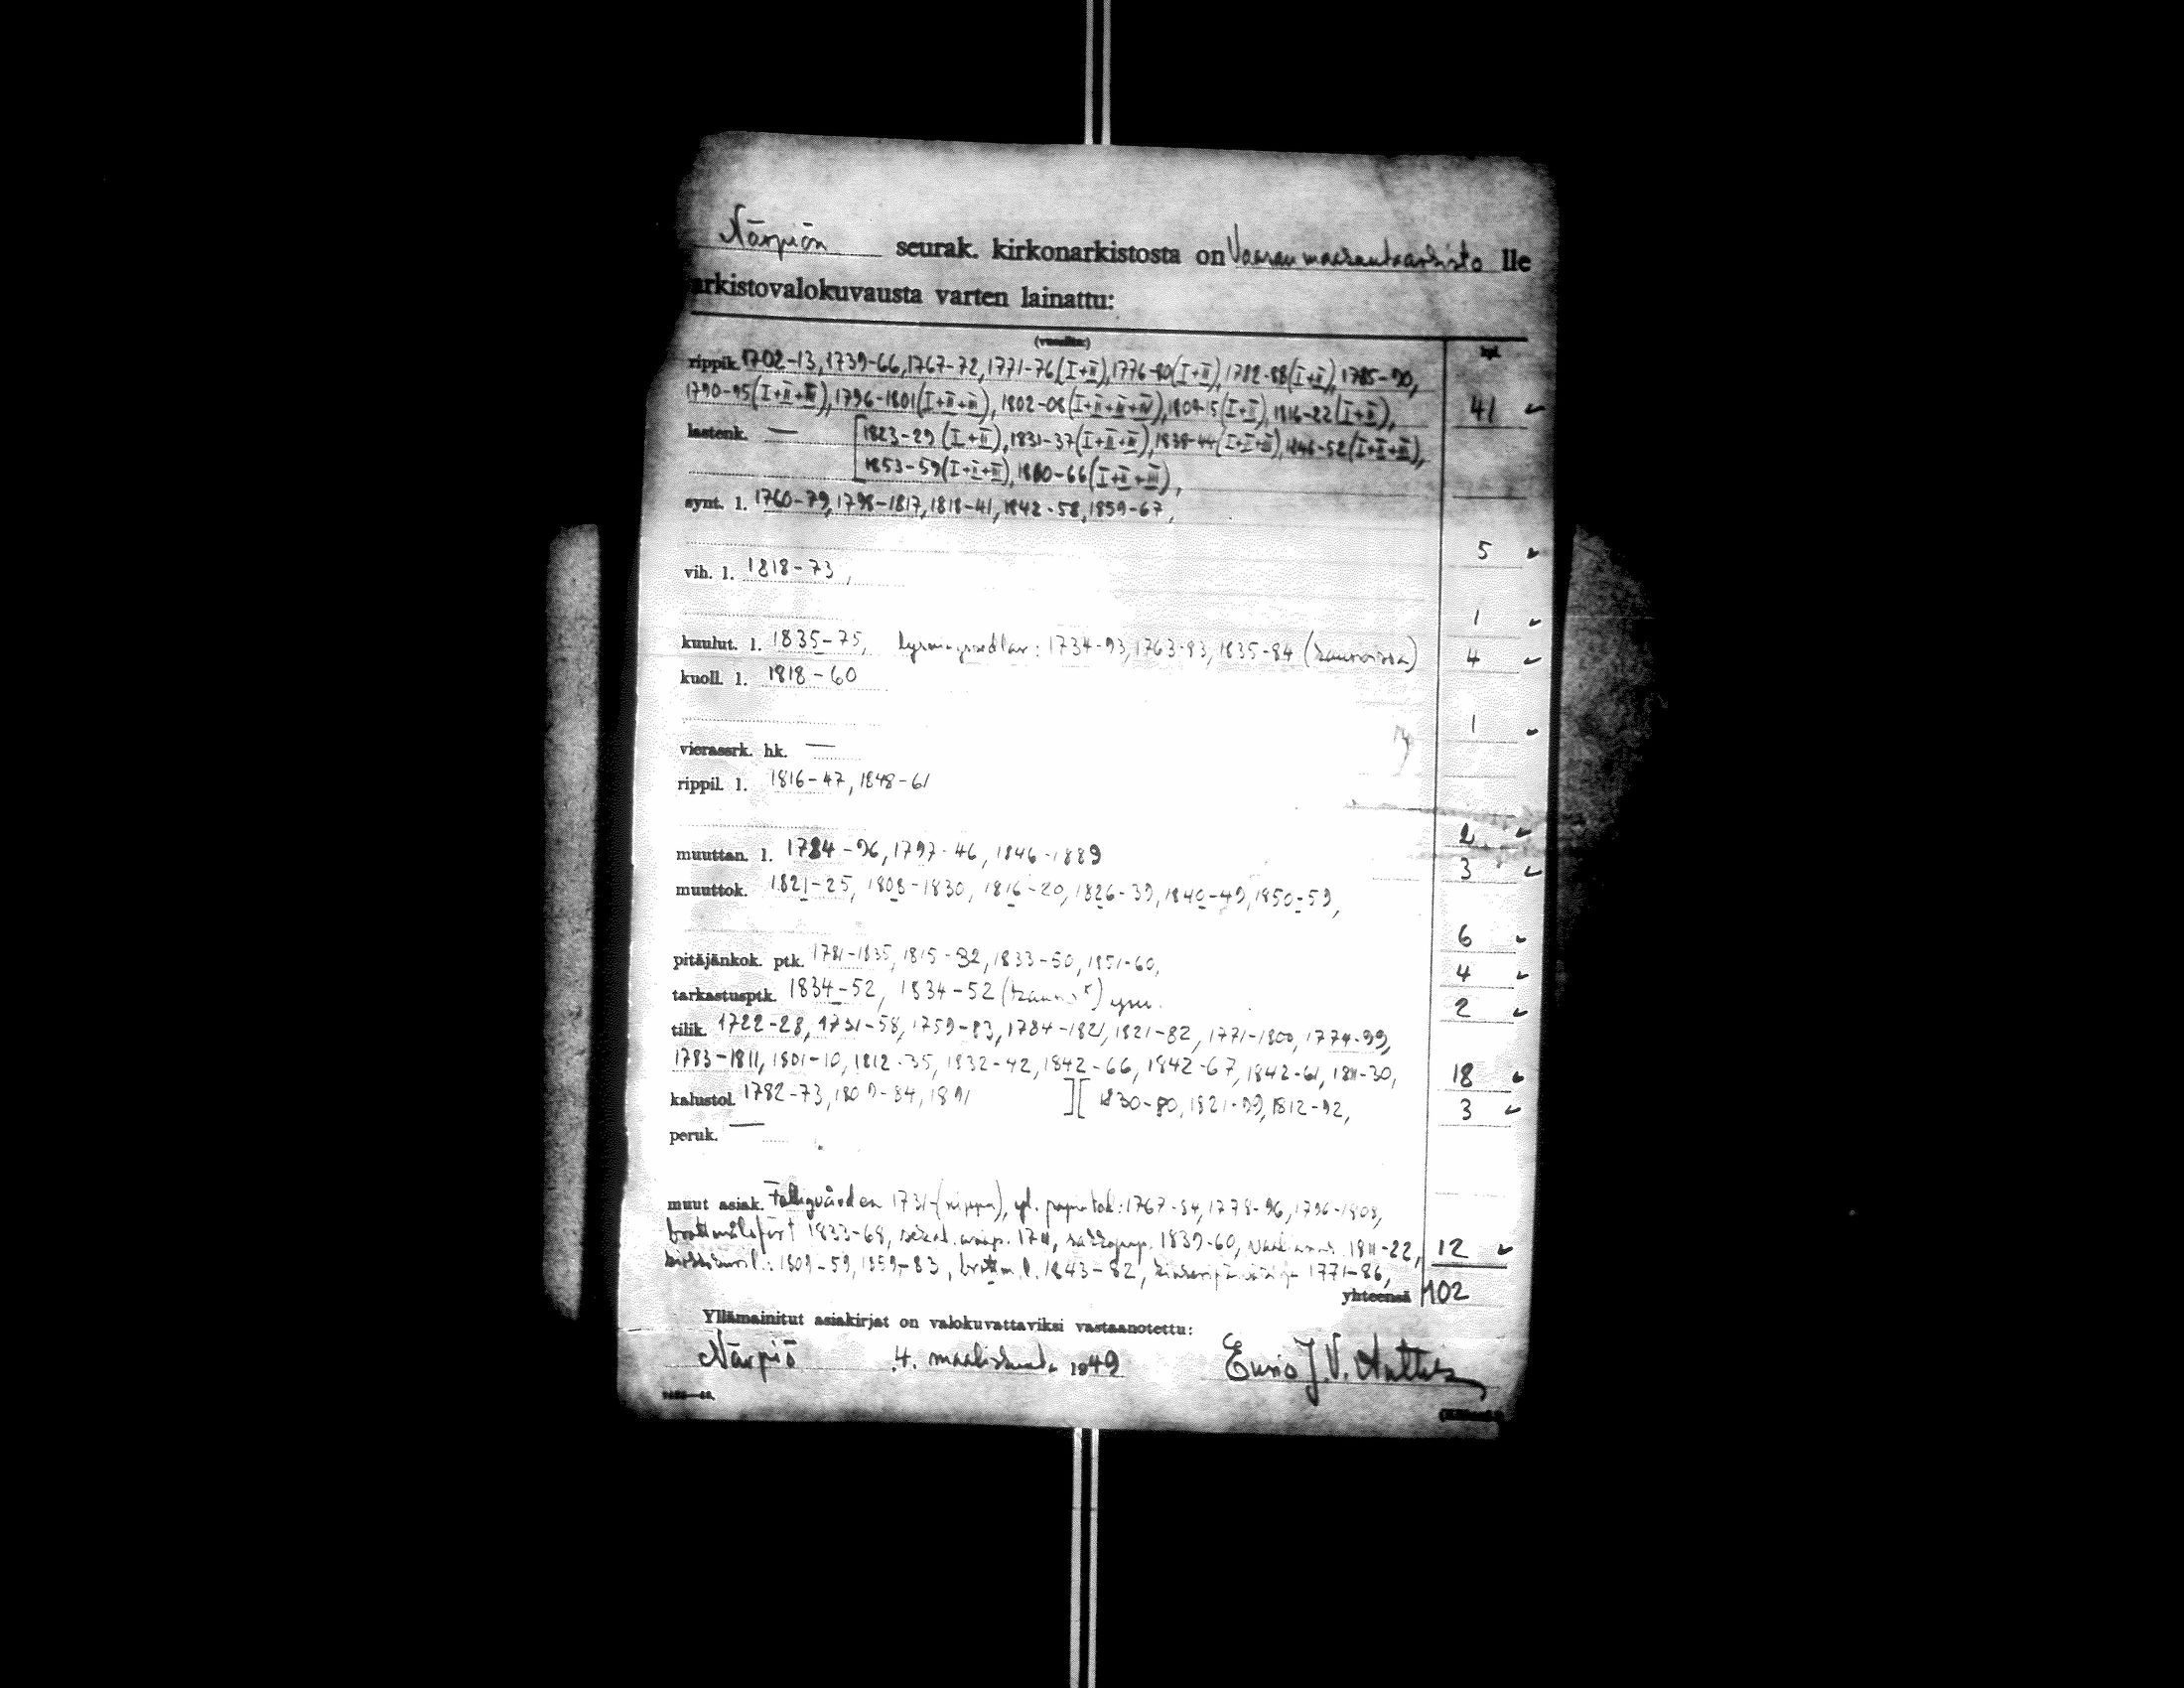 Närpiön seurak. kirkonarkistosta on Vaasan maakuntaarkisto lle
arkistovalokuvausta varten lainattu:
(vuosilta:) kpl.
rippik. 1702-13, 1739-66, 1767-72, 1771-76 (I+II), 1776-80 (I+II), 1782-88 (I+II), 1785-90,
1790-95 (I+II+III), 1796-1801 (I+II+III), 1802-08 (I+II+III+IV), 1809-15 (I+II), 1816-22 (I+II), 41
lastenk. — [1823-29 (I+II), 1831-37 (I+II+III), 1838-44 (I+II+III), 1846-52 (I+II+III),
1853-59 (I+II+III), 1860-66 (I+II+III),
synt. l. 1760-79, 1798-1817, 1818-41, 1842-58, 1859-67,
5
vih. l. 1818-73,
1
kuulut. l. 1835-75, lysningssedlar: 1734-93, 1763-93, 1835-84 4
kuoll. l. 1818-60
1
vierassrk. hk. —
rippil. l. 1816-47, 1848-61
2
muuttan. l. 1784-96, 1797-46, 1846-1889 3
muuttok. 1821-25, 1808-1830, 1816-20, 1826-39, 1840-49, 1850-59,
6
pitäjänkok. ptk. 1781-1835, 1815-32, 1833-50, 1851-60, 4
tarkastusptk. 1834-52, 1834-52 2
tilik. 1722-28, 1731-58, 1759-83, 1784-1821, 1821-82, 1771-1800, 1774-99,
1783-1811, 1801-10, 1812-35, 1832-42, 1842-66, 1842-67, 1842-61, 1811-30, 18
kalustol. 1782-73, 1809-84, 1891 ][ 1830-80, 1821-99, 1812-92, 3
peruk. —
muut asiak. 1731- 1767-84, 1778-96, 1796-1808,
1833-68, 1839-60, 1811-22, 12
1809-59, 1859-83, brottm.l. 1843-82, 1771-86,
yhteensä 102
Yllämainitut asiakirjat on valokuvattaviksi vastaanotettu:
Närpiö 4. maaliskuuta 1949 J.V.